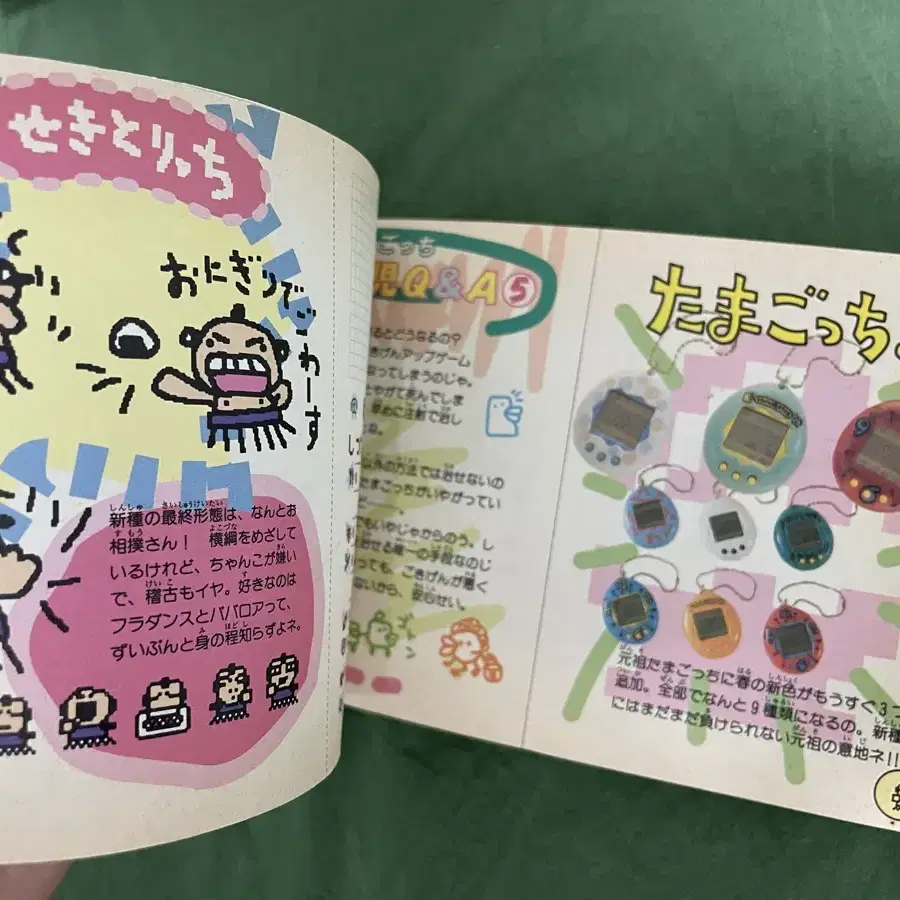 せきとりっち
おにぎりで
ごわーす
新種の最終形態は、なんとお
相撲さん! 横綱をめざして
いるけれど、ちゃんこが嫌い
で、稽古もイヤ。好きなのは
フラダンスとババロアって、
ずいぶんと身の程知らずよネ。
ごっち
児Q&A⑤
るとどうなるの?
きげんアップゲーム
なってしまうのじゃ。
てやがて死んでしま
早めに注射で治し
な。
以外の方法では治せないの
たまごっちがいやがってい
もいやじゃからのう。し
おせる唯一の手段なのじ
っても、ごきげんが悪く
ないから、安心せい。
たまごっち
元祖たまごっちに春の新色がもうすぐ3つ
追加。全部でなんと9種類になるの。新種
にはまだまだ負けられない元祖の意地ネ!!